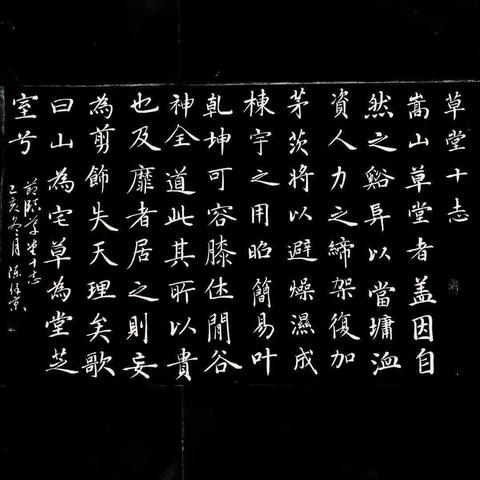 草堂十志
嵩山草堂者盖因自
然之谿阜以當墉洫
資人力之締架復加
茅茨將以避燥濕成
棟宇之用昭簡易叶
乾坤可容膝休閒谷
神全道此其所以貴
也及靡者居之則妄
為剪飾失天理矣歌
曰山為宅草為堂芝
室兮
節臨草堂十志
己亥冬月